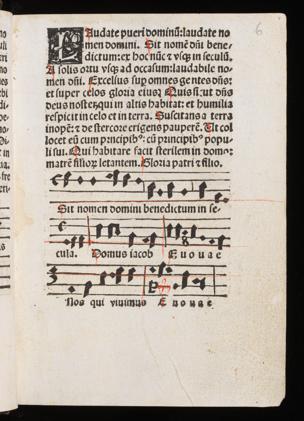 6
Laudate pueri dominū: laudate no
men domini. Sit nomē dñi bene-
dictum: ex hoc nūc ⁊ vsq; in seculū.
A solis ortu vsq; ad occasum: laudabile no-
men dñi. Excelsus sup omnes gentes dñs:
et super celos gloria eius. Quis sicut dñs
deus noster: qui in altis habitat: et humilia
respicit in celo et in terra. Suscitans a terra
inopē: ⁊ de stercore erigens pauperē. Ut col
locet eū cum prīcipib⁹: cū prīcipib⁹ popu-
li sui. Qui habitare facit sterilem in domo:
matrē filioꝝ letantem. Gloria patri ⁊ filio.
Sit nomen domini benedictum in se-
cula. Domus iacob E u o u a e
Nos qui viuimus E u o u a e